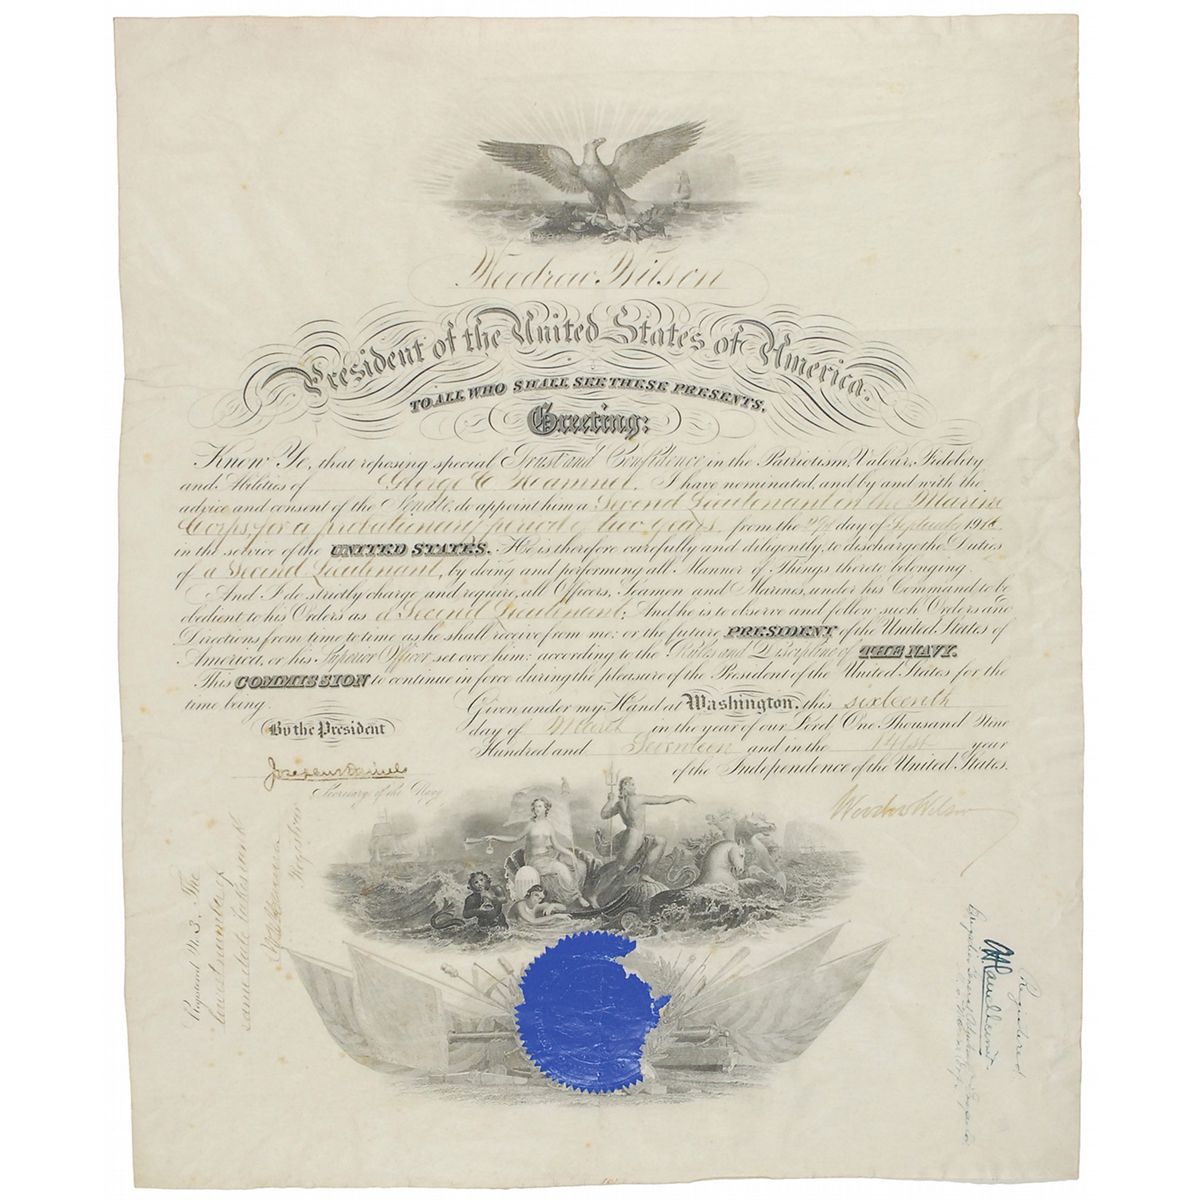 Woodrow Wilson
President of the United States of America.
TO ALL WHO SHALL SEE THESE PRESENTS,
Greeting:
Know Ye, that reposing special Trust and Confidence in the Patriotism, Valour, Fidelity
and Abilities of George C. I have nominated, and by and with the
advice and consent of the Senate, do appoint him a Second Lieutenant in the Marine
Corps, for a probationary period of two years, from the day of September 191
in the service of the UNITED STATES. He is therefore carefully and diligently, to discharge the Duties
of a Second Lieutenant, by doing and performing all Manner of Things thereto belonging.
And I do strictly charge and require, all Officers, Seamen and Marines, under his Command to be
obedient to his Orders as a Second Lieutenant; And he is to observe and follow such Orders and
Directions from time to time as he shall receive from me: or the future PRESIDENT of the United States of
America, or his Superior Officer set over him: according to the Rules and Discipline of THE NAVY.
This COMMISSION to continue in force during the pleasure of the President of the United States for the
time being.
Given under my Hand at Washington, this sixteenth
day of March in the year of our Lord One Thousand Nine
Hundred and Seventeen and in the 141st year
of the Independence of the United States.
By the President
Josephus Daniels
Secretary of the Navy
Woodrow Wilson
Registered No. 3. The
lowest number of
same date takes rank
Registrar
Registered
Brigadier General Adjutant Inspector
U.S. Marine Corps.